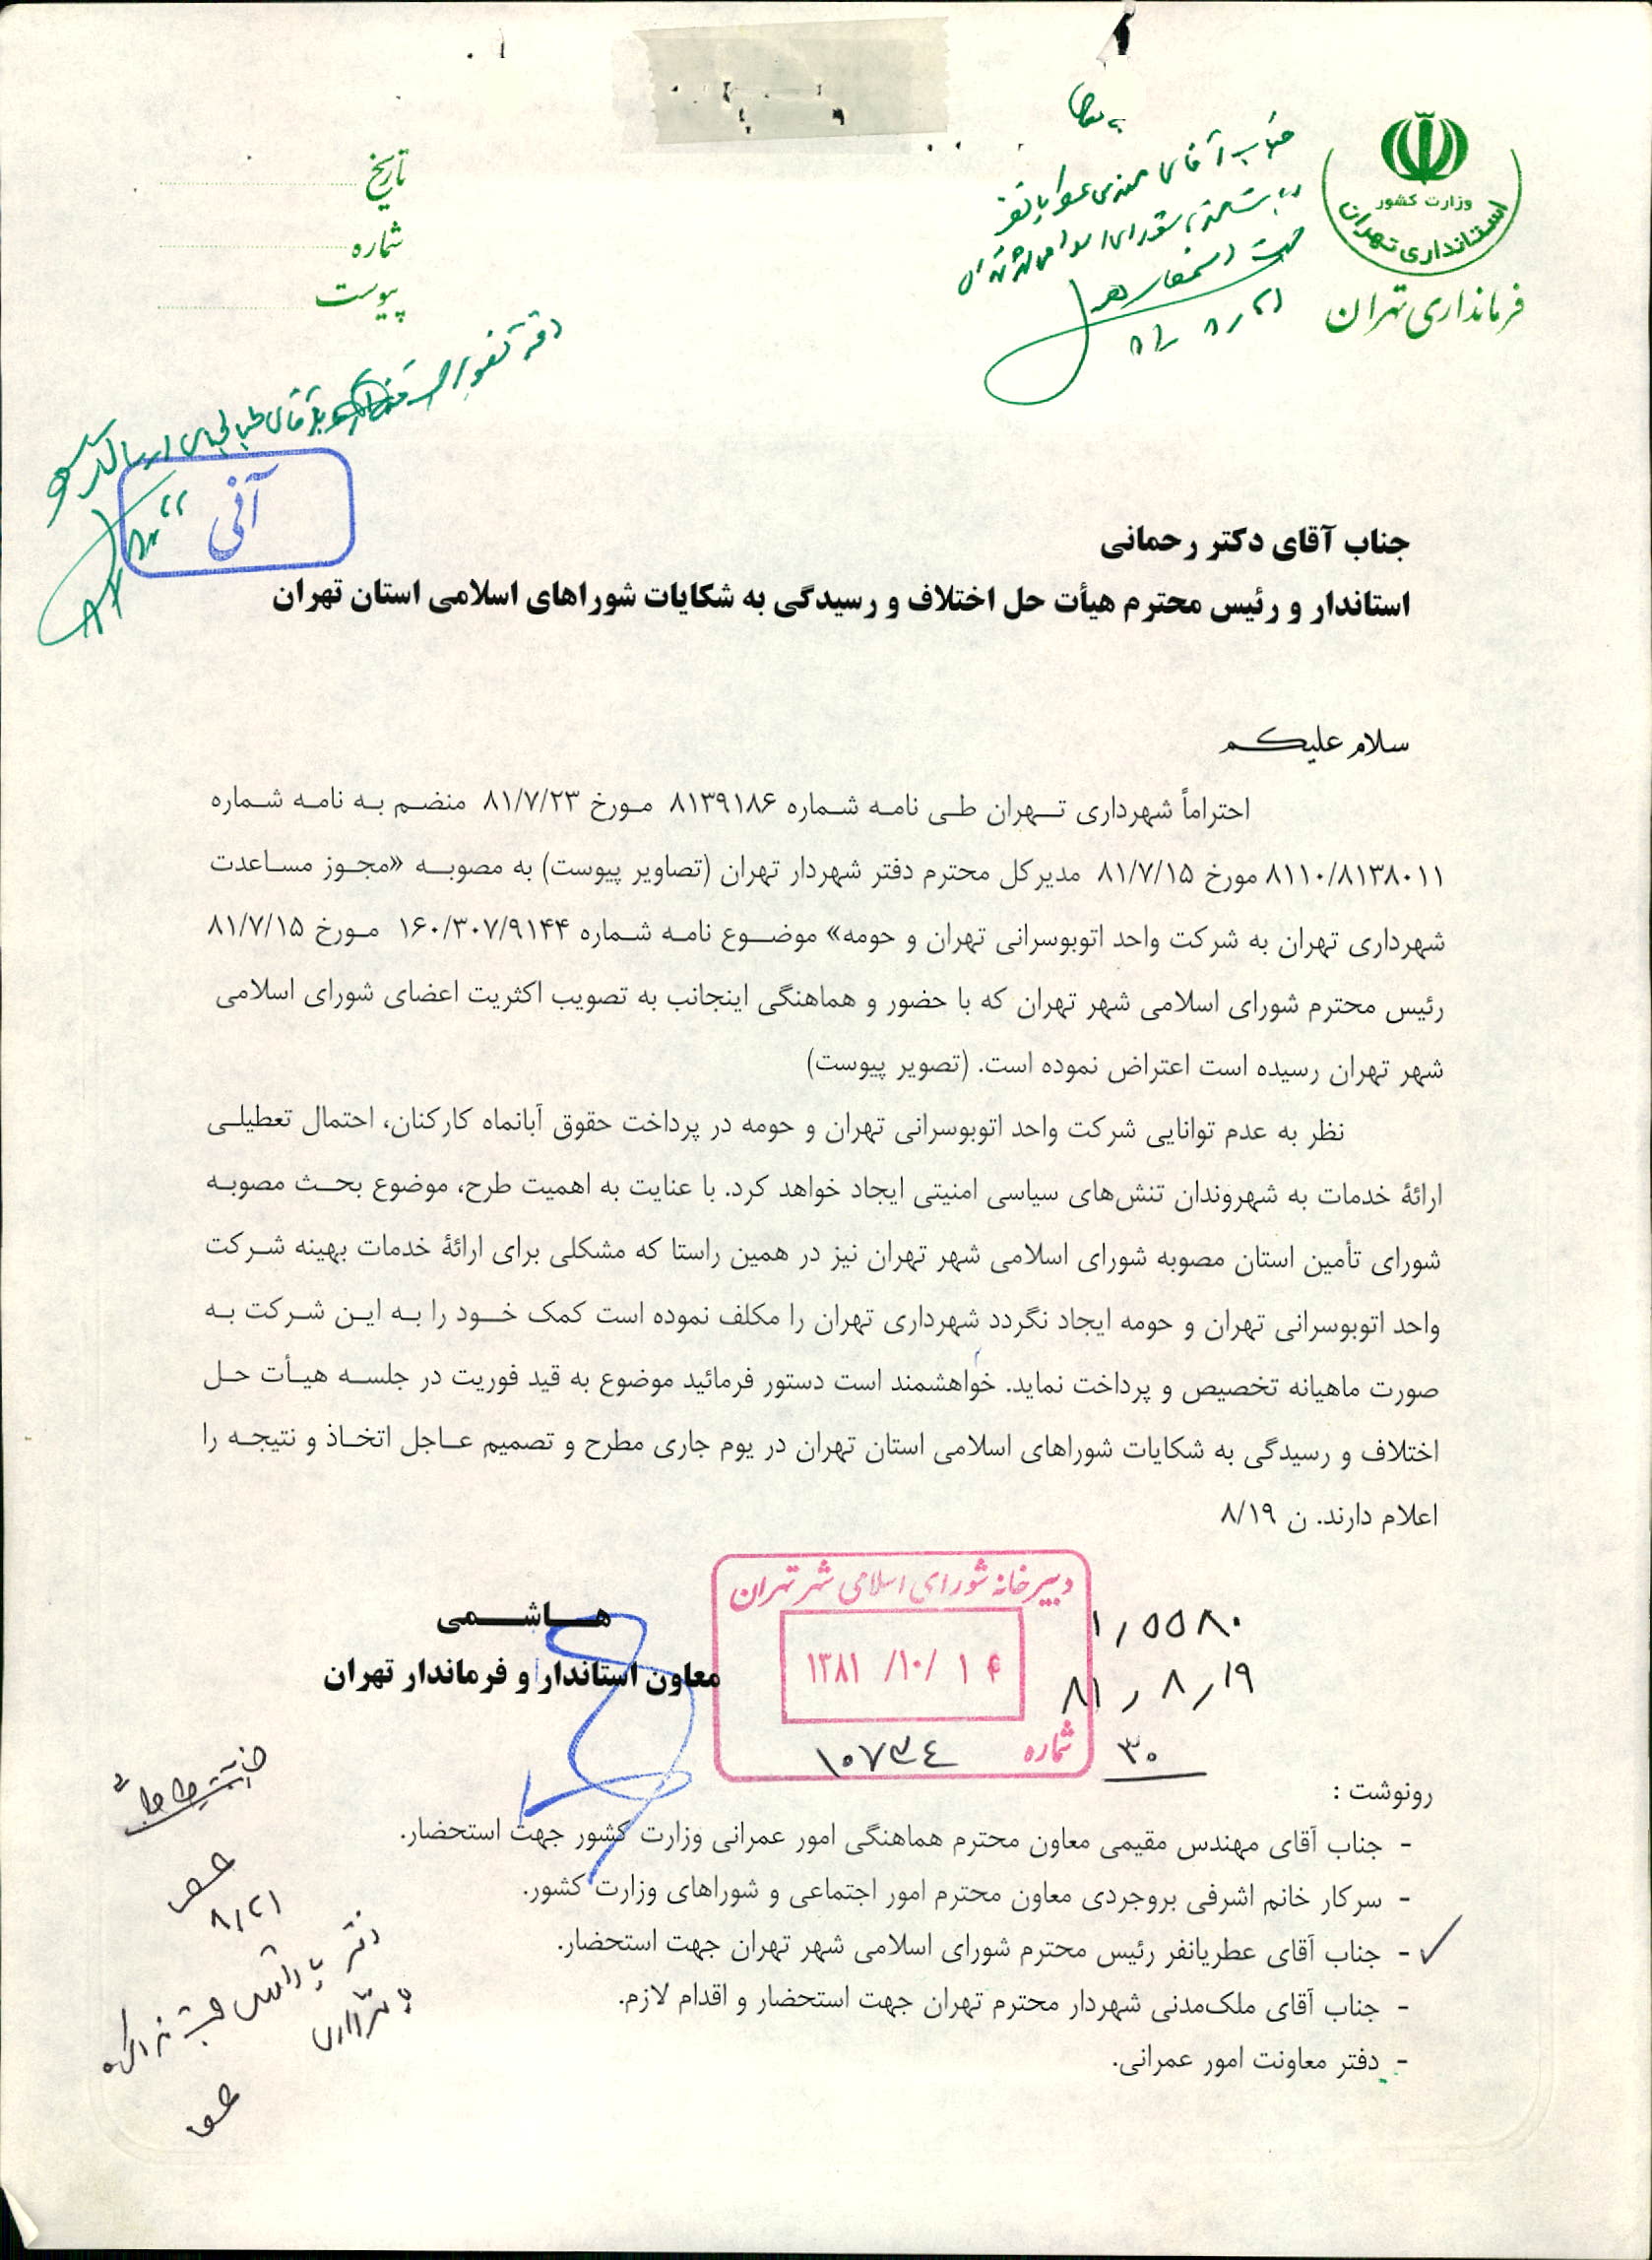 وزارت کشور
استانداری تهران
فرمانداری تهران
تاریخ
شماره
پیوست
جناب آقای مهندس عطریانفر
ریاست محترم شورای اسلامی شهر تهران
جهت استحضار
۸۱/۸/۲۱
آنی
جناب آقای دکتر رحمانی
استاندار و رئیس محترم هیأت حل اختلاف و رسیدگی به شکایات شوراهای اسلامی استان تهران
سلام علیکم
احتراماً شهرداری تهران طی نامه شماره ۸۱۳۹۱۸۶ مورخ ۸۱/۷/۲۳ منضم به نامه شماره
۸۱۱۰/۸۱۳۸۰۱۱ مورخ ۸۱/۷/۱۵ مدیرکل محترم دفتر شهردار تهران (تصاویر پیوست) به مصوبه «مجوز مساعدت
شهرداری تهران به شرکت واحد اتوبوسرانی تهران و حومه» موضوع نامه شماره ۱۶۰/۳۰۷/۹۱۴۴ مورخ ۸۱/۷/۱۵
رئیس محترم شورای اسلامی شهر تهران که با حضور و هماهنگی اینجانب به تصویب اکثریت اعضای شورای اسلامی
شهر تهران رسیده است اعتراض نموده است. (تصویر پیوست)
نظر به عدم توانایی شرکت واحد اتوبوسرانی تهران و حومه در پرداخت حقوق آبانماه کارکنان، احتمال تعطیلی
ارائهٔ خدمات به شهروندان تنش‌های سیاسی امنیتی ایجاد خواهد کرد. با عنایت به اهمیت طرح، موضوع بحث مصوبه
شورای تأمین استان مصوبه شورای اسلامی شهر تهران نیز در همین راستا که مشکلی برای ارائهٔ خدمات بهینه شرکت
واحد اتوبوسرانی تهران و حومه ایجاد نگردد شهرداری تهران را مکلف نموده است کمک خود را به این شرکت به
صورت ماهیانه تخصیص و پرداخت نماید. خواهشمند است دستور فرمائید موضوع به قید فوریت در جلسه هیأت حل
اختلاف و رسیدگی به شکایات شوراهای اسلامی استان تهران در یوم جاری مطرح و تصمیم عاجل اتخاذ و نتیجه را
اعلام دارند. ن ۸/۱۹
هاشمی
معاون استاندار و فرماندار تهران
دبیرخانه شورای اسلامی شهر تهران
۱۳۸۱ /۱۰/ ۱۴
شماره ۱۰۷۳۴
۱٫۵۵۸۰
۸۱٫۸٫۱۹
۳۰
رونوشت :
- جناب آقای مهندس مقیمی معاون محترم هماهنگی امور عمرانی وزارت کشور جهت استحضار.
- سرکار خانم اشرفی بروجردی معاون محترم امور اجتماعی و شوراهای وزارت کشور.
- جناب آقای عطریانفر رئیس محترم شورای اسلامی شهر تهران جهت استحضار.
- جناب آقای ملک‌مدنی شهردار محترم تهران جهت استحضار و اقدام لازم.
- دفتر معاونت امور عمرانی.
۸/۲۱
دفتر